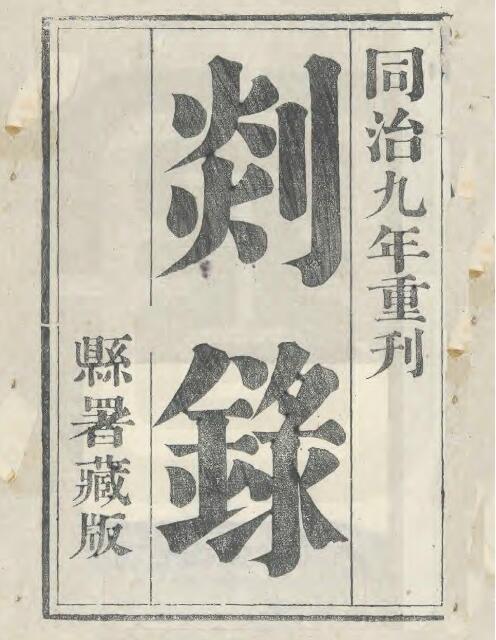 同治九年重刊
剡錄
縣署藏版